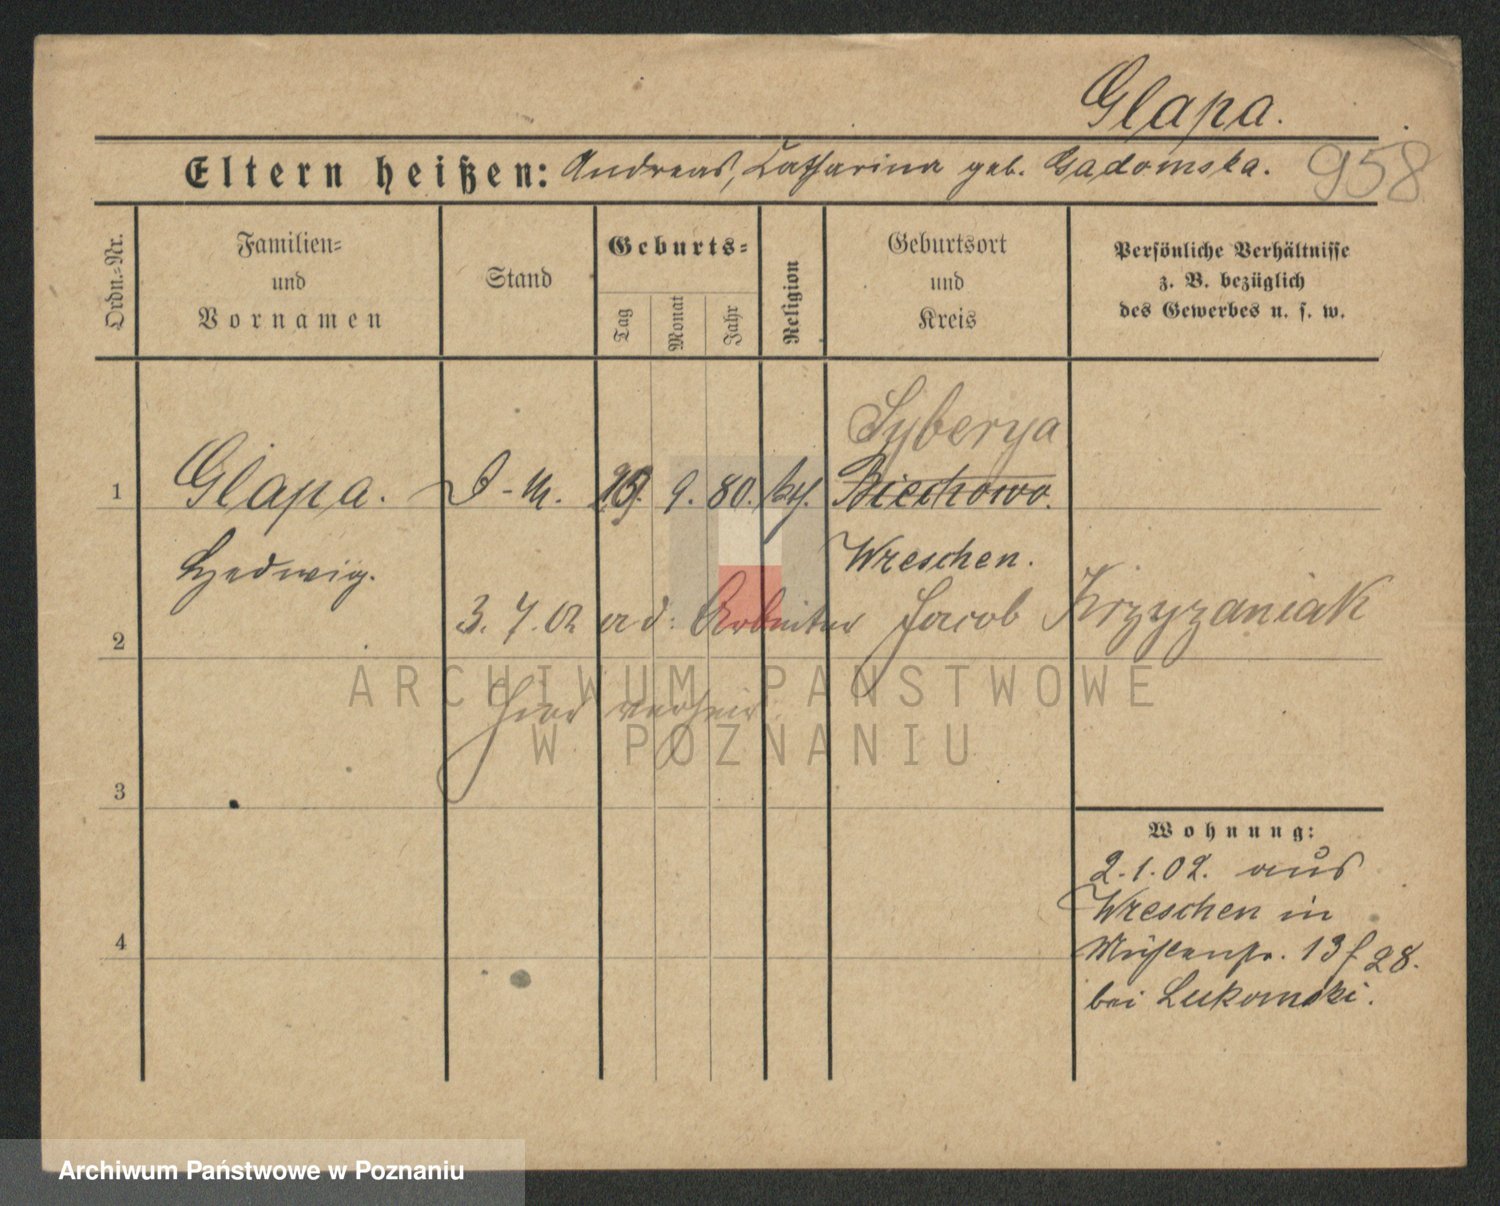 Glapa.
Eltern heißen: Andreas, Catharina geb. Gadomska. 958
Ordn.-Nr.
Familien- und Vornamen
Stand
Geburts-
Tag
Monat
Jahr
Religion
Geburtsort und Kreis
Persönliche Verhältnisse z. B. bezüglich des Gewerbes u. s. w.
Syberya
1 Glapa. D-M. 9. 80. kth. Biechowo.
Hedwig. Wreschen.
2 3.7.02 ad: Arbeiter Jacob Krzyzaniak
hier verheir
3
Wohnung:
2.1.02. aus
Wreschen in
Mühlenstr. 13 f 28.
4
bei Lukomski.
ARCHIWUM PAŃSTWOWE
W POZNANIU
Archiwum Państwowe w Poznaniu